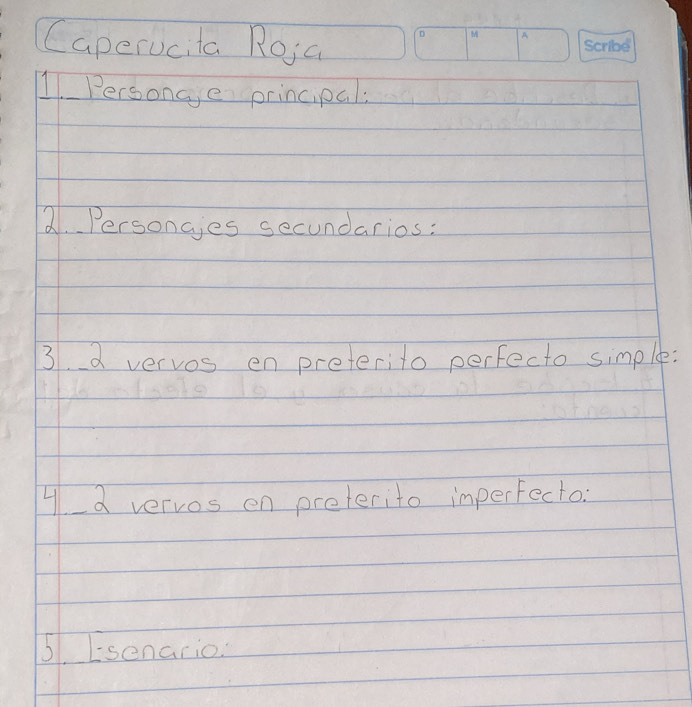 Caperucita Roja
D M A
Scribe
1.- Personaje principal:
2.- Personajes secundarios:
3.- 2 vervos en preterito perfecto simple:
4.- 2 vervos en preterito imperfecto:
5.- Esenario: